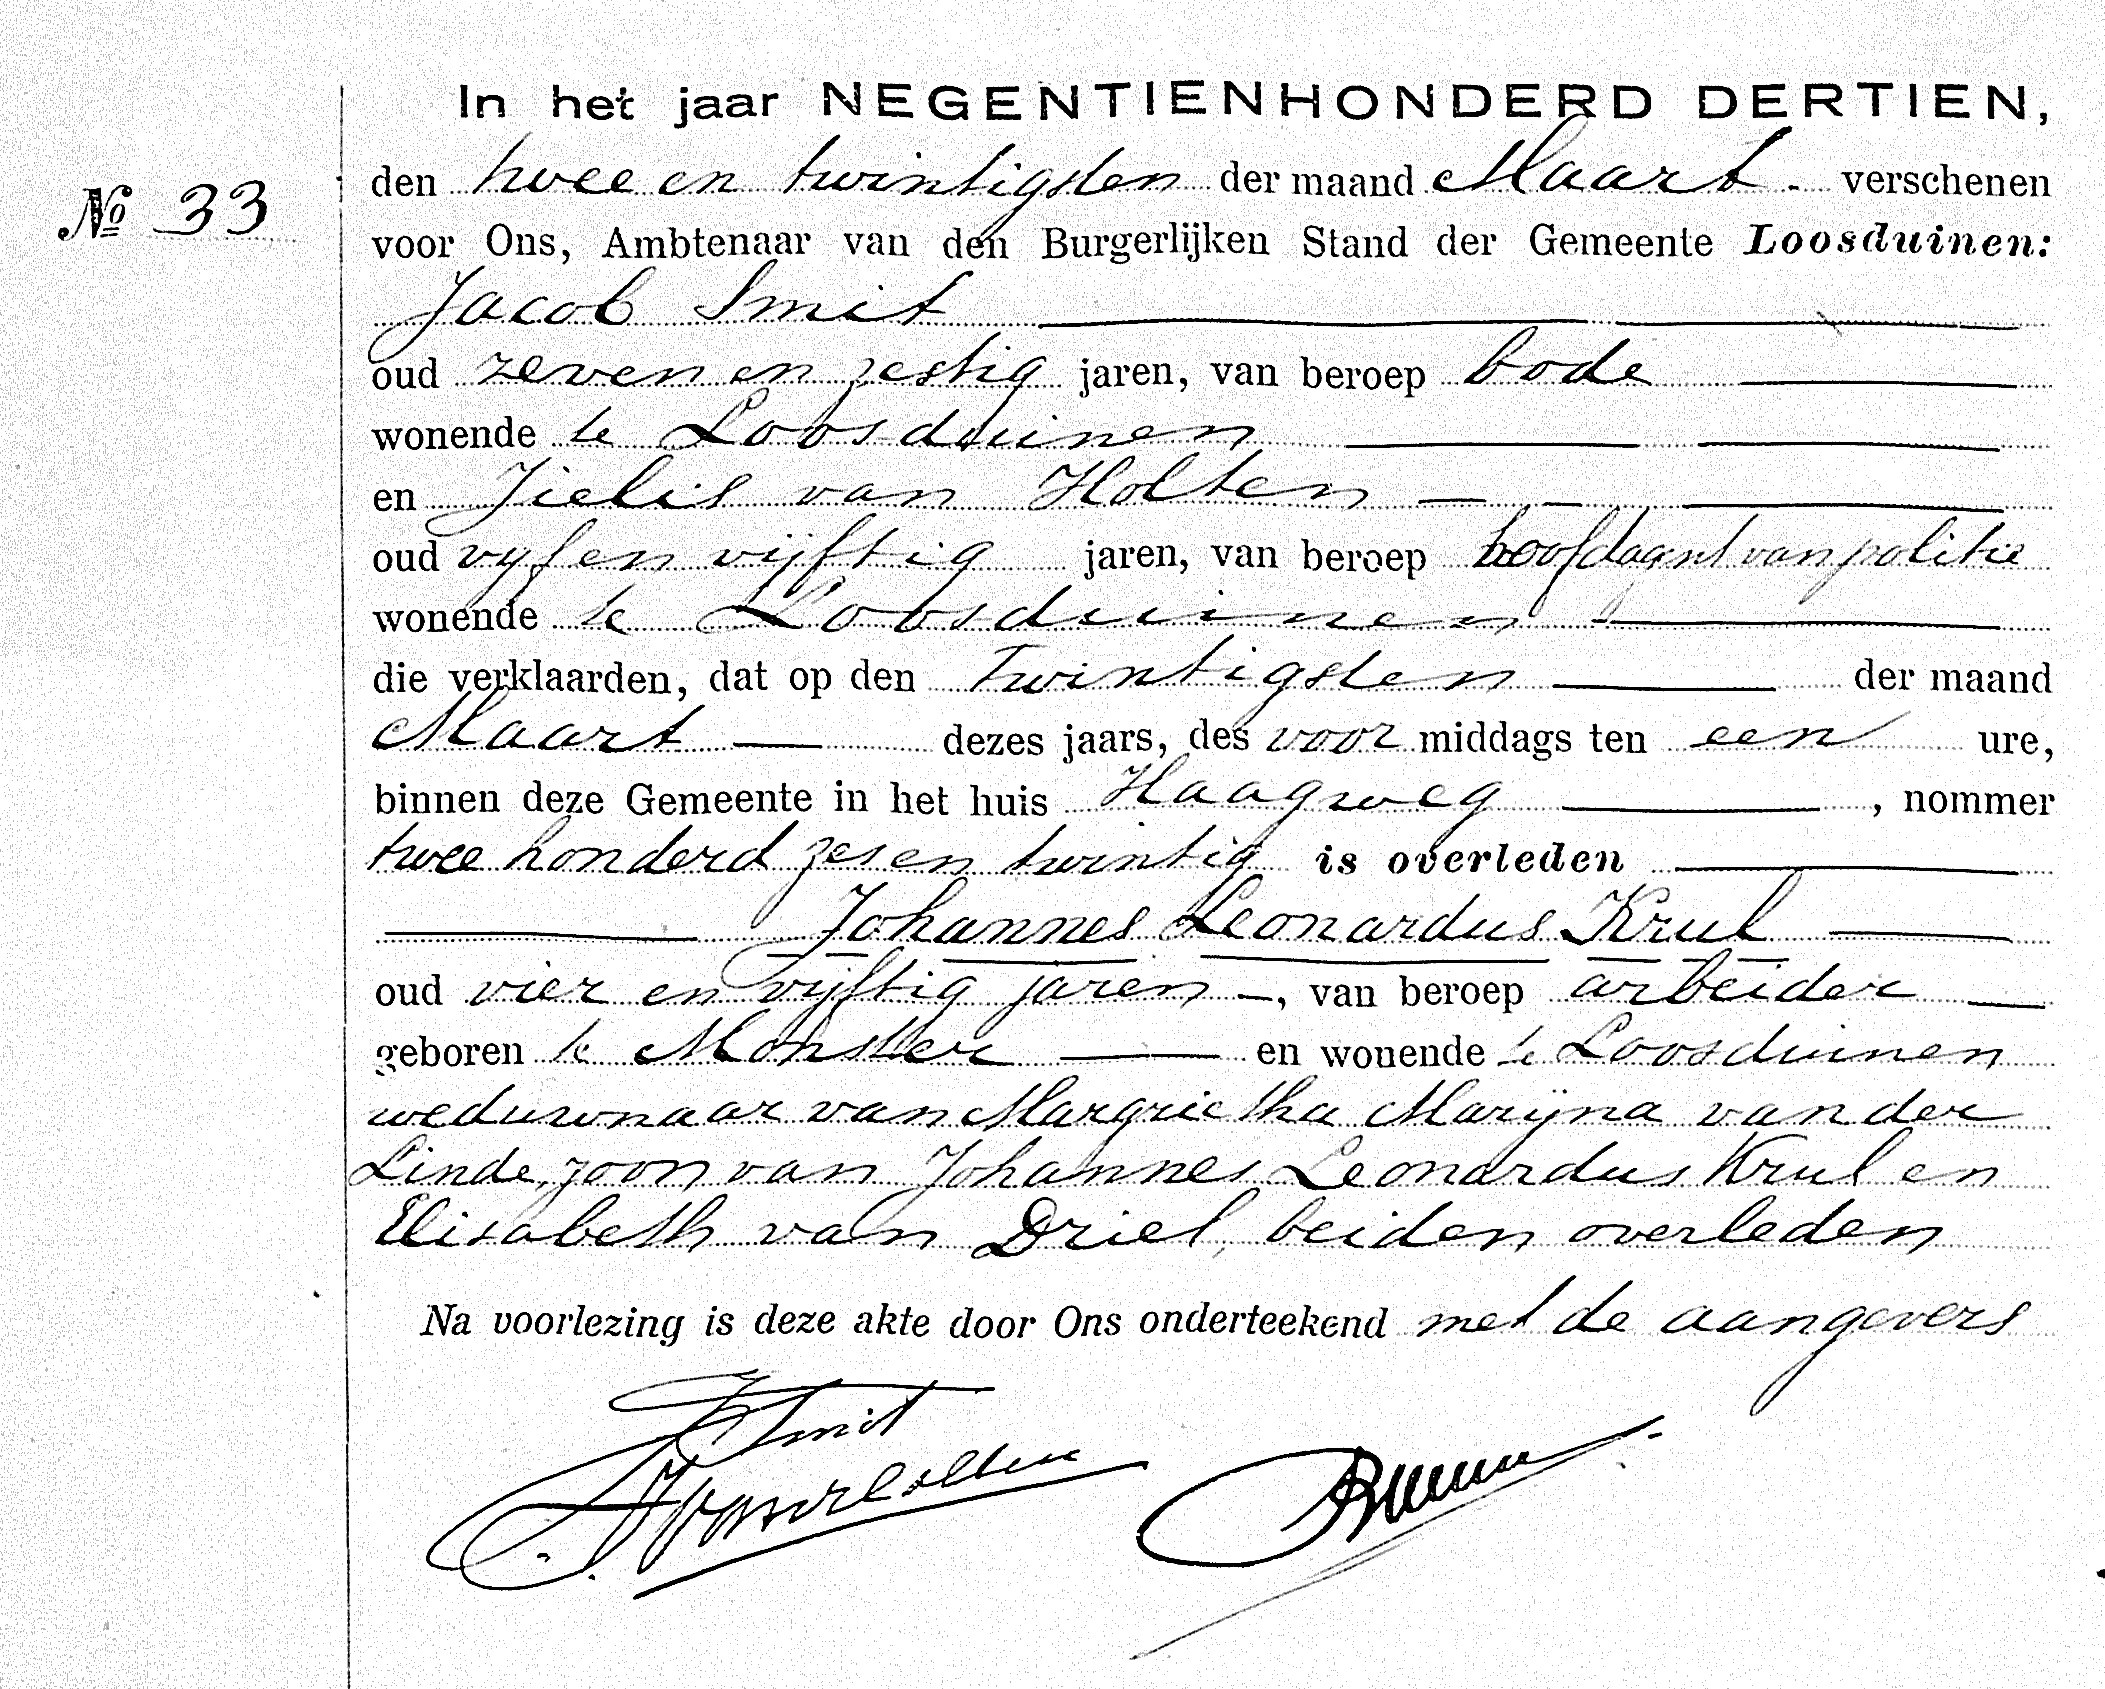 In het jaar NEGENTIENHONDERD DERTIEN,
den twee en twintigsten der maand Maart - verschenen
No 33
voor Ons, Ambtenaar van den Burgerlijken Stand der Gemeente Loosduinen:
Jacob Smit
oud zeven en zestig jaren, van beroep bode
wonende te Loosduinen
en Jielis van Holten
oud vyf en vijftig jaren, van beroep hoofdagent van politie
wonende te Loosduinen
die verklaarden, dat op den twintigsten der maand
Maart dezes jaars, des voor middags ten een ure,
binnen deze Gemeente in het huis Haagweg, nommer
twee honderd zes en twintig is overleden
Johannes Leonardus Krul
oud vier en vijftig jaren, van beroep arbeider
geboren te Monster en wonende te Loosduinen
weduwnaar van Margrietha Marijna van der
Linde, zoon van Johannes Leonardus Krul en
Elisabeth van Driel, beiden overleden
Na voorlezing is deze akte door Ons onderteekend met de aangevers
J Smit
J van Holten